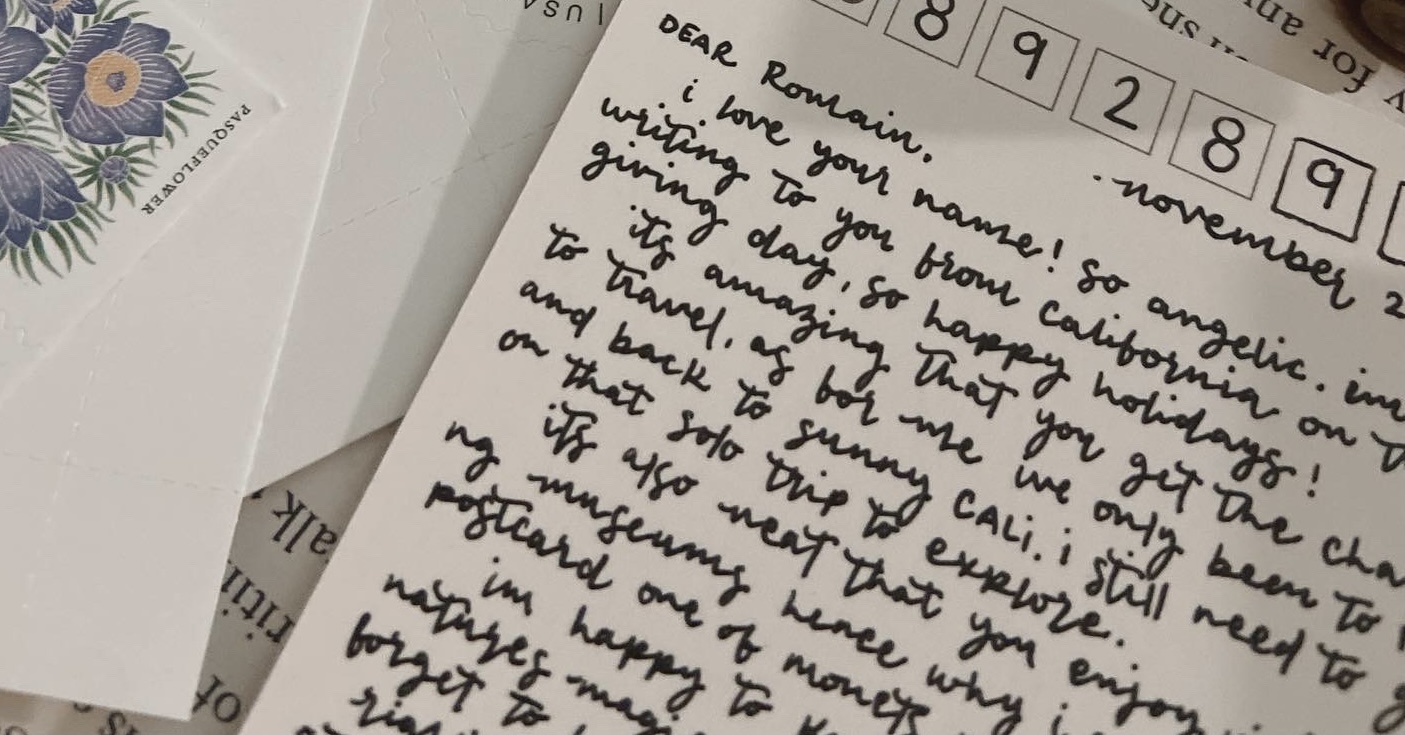 PASQUEFLOWER
USA
8 9 2 8 9
for an
alk
of
november 2
DEAR Romain,
i love your name! so angelic. im
writing to you from california on T
giving day, so happy holidays!
its amazing that you get the cha
to travel, as for me ive only been to
and back to sunny CALi. i still need to g
on that solo trip to explore.
its also neat that you enjoy
ng museums hence why i
postcard one of monets
im happy to
natures magi
forget to